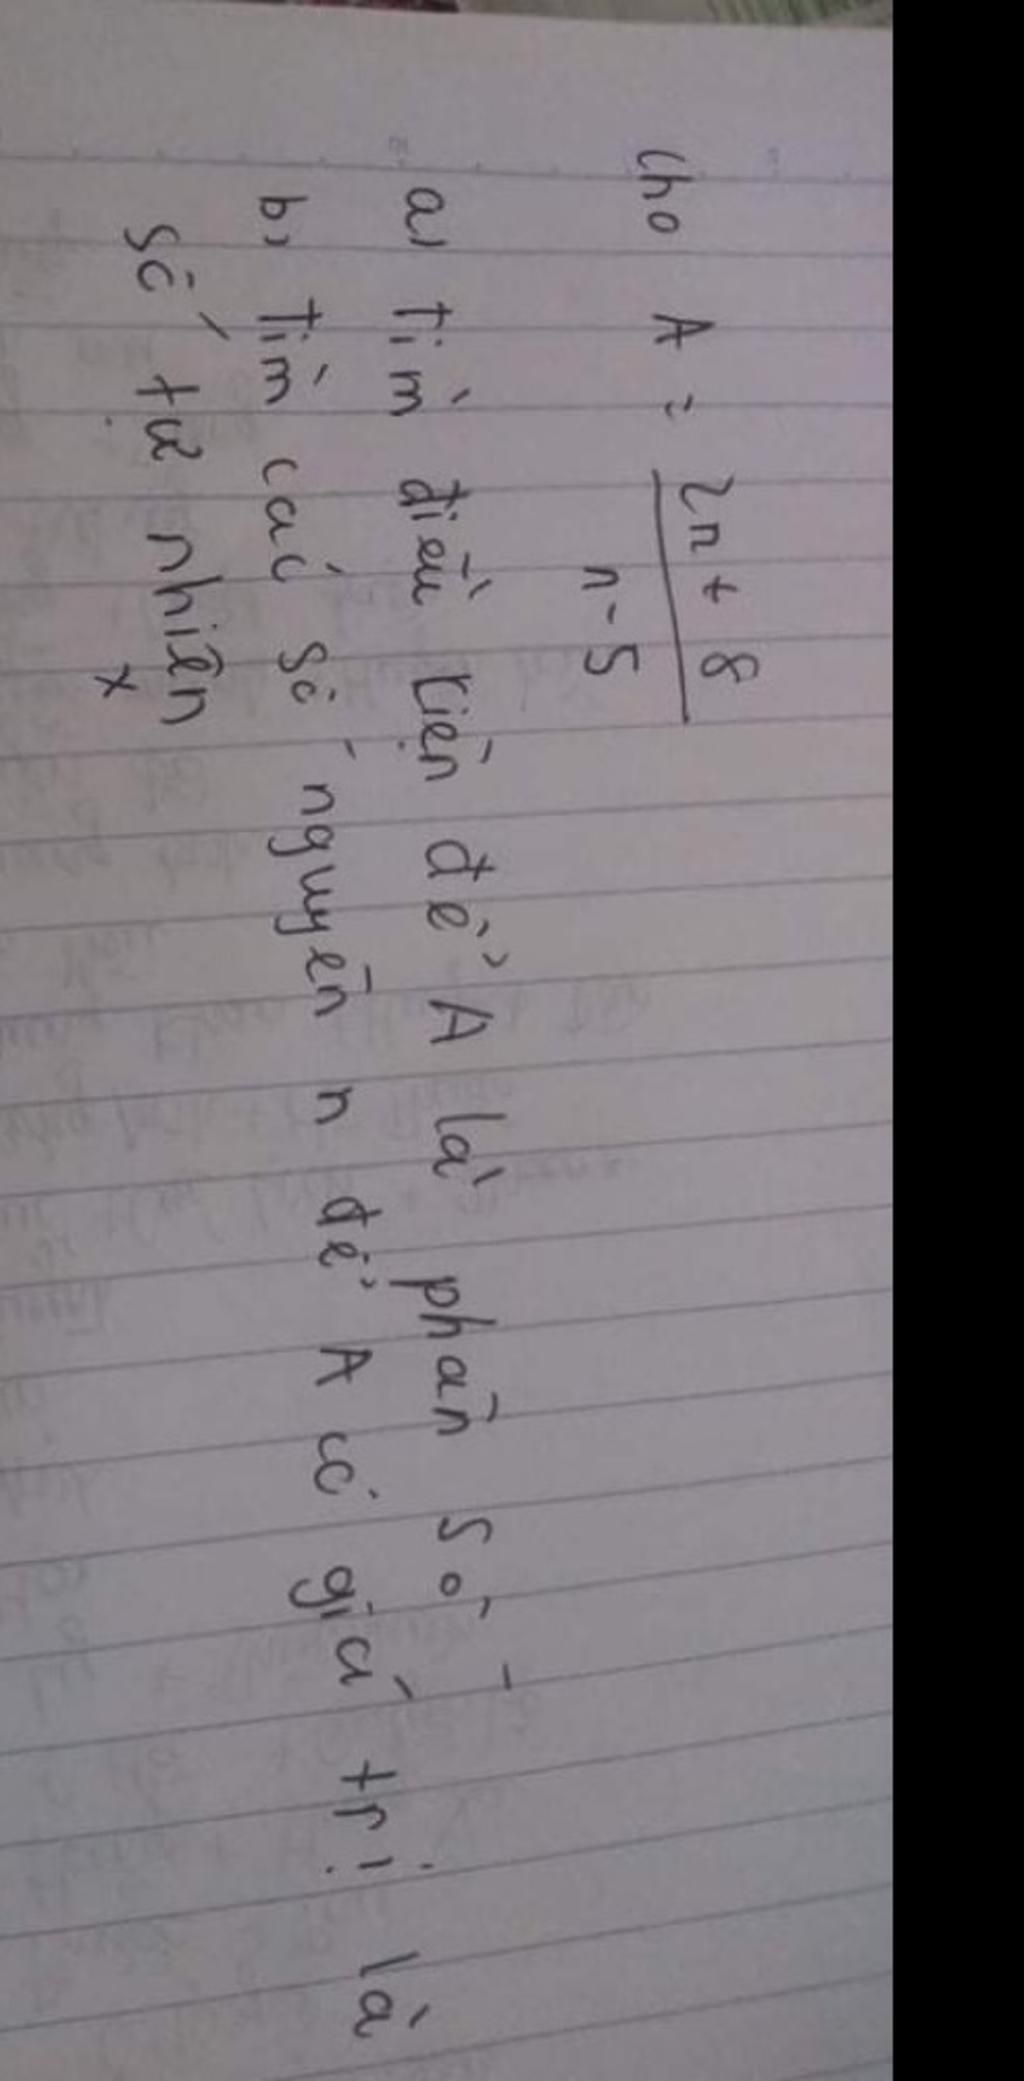 Cho A = 2n + 8
n - 5
a) Tìm điều kiện để A là phân số
b) Tìm các số nguyên n để A có giá trị là
số tự nhiên